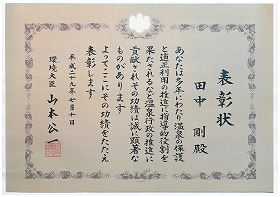 表彰状
田中 剛 殿
あなたは多年にわたり温泉の保護
と適正利用の推進に指導的役割を
果たされるなど温泉行政の推進に
貢献されその功績は誠に顕著な
ものがあります
よってここにその功績をたたえ
表彰します
平成二十九年七月十日
環境大臣 山本公一